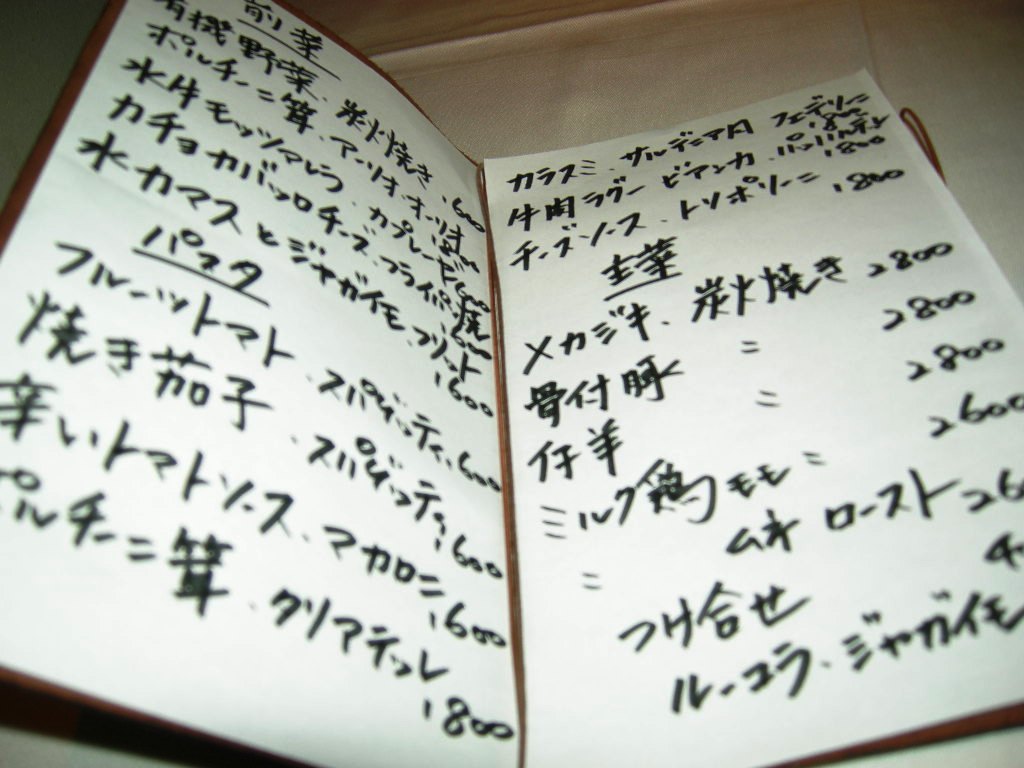 前菜
有機野菜、炭火焼き 1600
ポルチーニ茸、アーリオ・オーリオ
水牛モッツァレラ、カプレーゼ
カチョカバッロチーズ、フライパン焼
水カマスとジャガイモ、フリット
1600
パスタ
フルーツトマト、スパゲッティ 1600
焼き茄子、スパゲッティ 1600
辛いトマトソース、マカロニ
1600
ポルチーニ茸、タリアテッレ
1800
カラスミ、サルデニア風 フェデリーニ
1800
牛肉ラグー ビアンカ、パッパルデッレ
1800
チーズソース、トリポリーニ 1800
主菜
メカジキ、炭火焼き 2800
骨付豚 〃 2800
仔羊 〃 2800
ミルク鶏 モモ 〃 2600
〃 ムネ ロースト
つけ合せ
ルーコラ、ジャガイモ